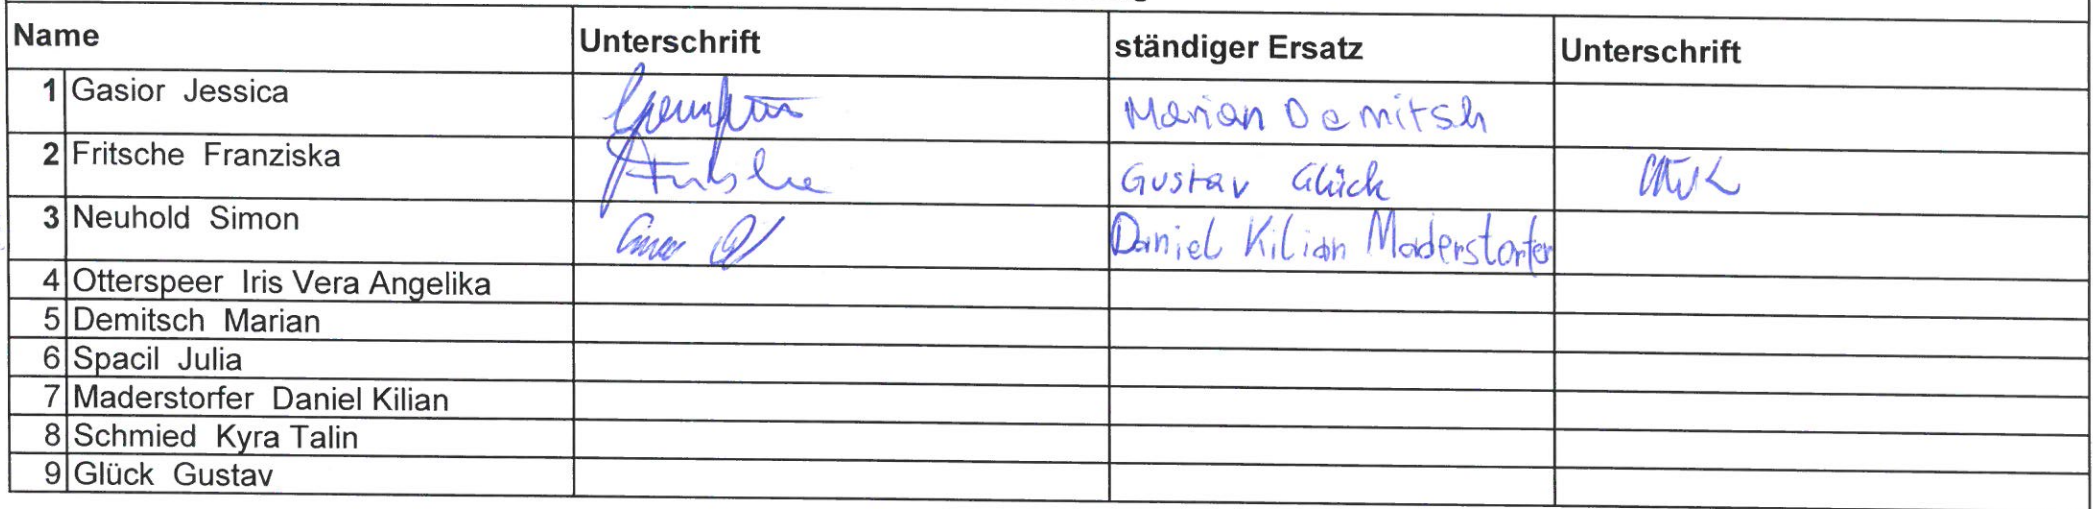 Name Unterschrift ständiger Ersatz Unterschrift
1 Gasior Jessica Marian Demitsch
2 Fritsche Franziska Gustav Glück
3 Neuhold Simon Daniel Kilian Maderstorfer
4 Otterspeer Iris Vera Angelika
5 Demitsch Marian
6 Spacil Julia
7 Maderstorfer Daniel Kilian
8 Schmied Kyra Talin
9 Glück Gustav